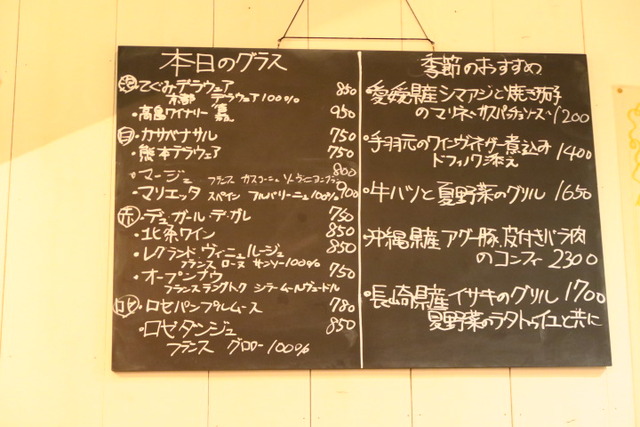 本日のグラス
泡 てぐみデラウェア 850
デラウェア100%
・高畠ワイナリー 嘉 950
白 ・カサベナサル 750
・熊本デラウェア 750
・マージュ フランス ガスコーニュ 800
・マリエッタ スペイン アルバリーニョ100% 900
赤 ・デュ ガール デ ガレ 750
・北条ワイン 850
・レグランド ヴィニュ ルージュ 850
フランス ローヌ サンソー100%
・オープンナウ 750
フランスラングドック シラー ムールヴェードル
ロゼ ・ロゼパンプルムース 780
・ロゼ ダンジュ 850
フランス グロロー100%
季節のおすすめ
・愛媛県産 シマアジと焼き茄子
のマリネ、ガスパチョソース 1200
・手羽元のワインヴィネガー煮込み 1400
ドフィノワ添え
・牛ハツと夏野菜のグリル 1650
・沖縄県産 アグー豚、皮付きバラ肉
のコンフィ 2300
・長崎県産イサキのグリル 1700
夏野菜のラタトゥイユと共に